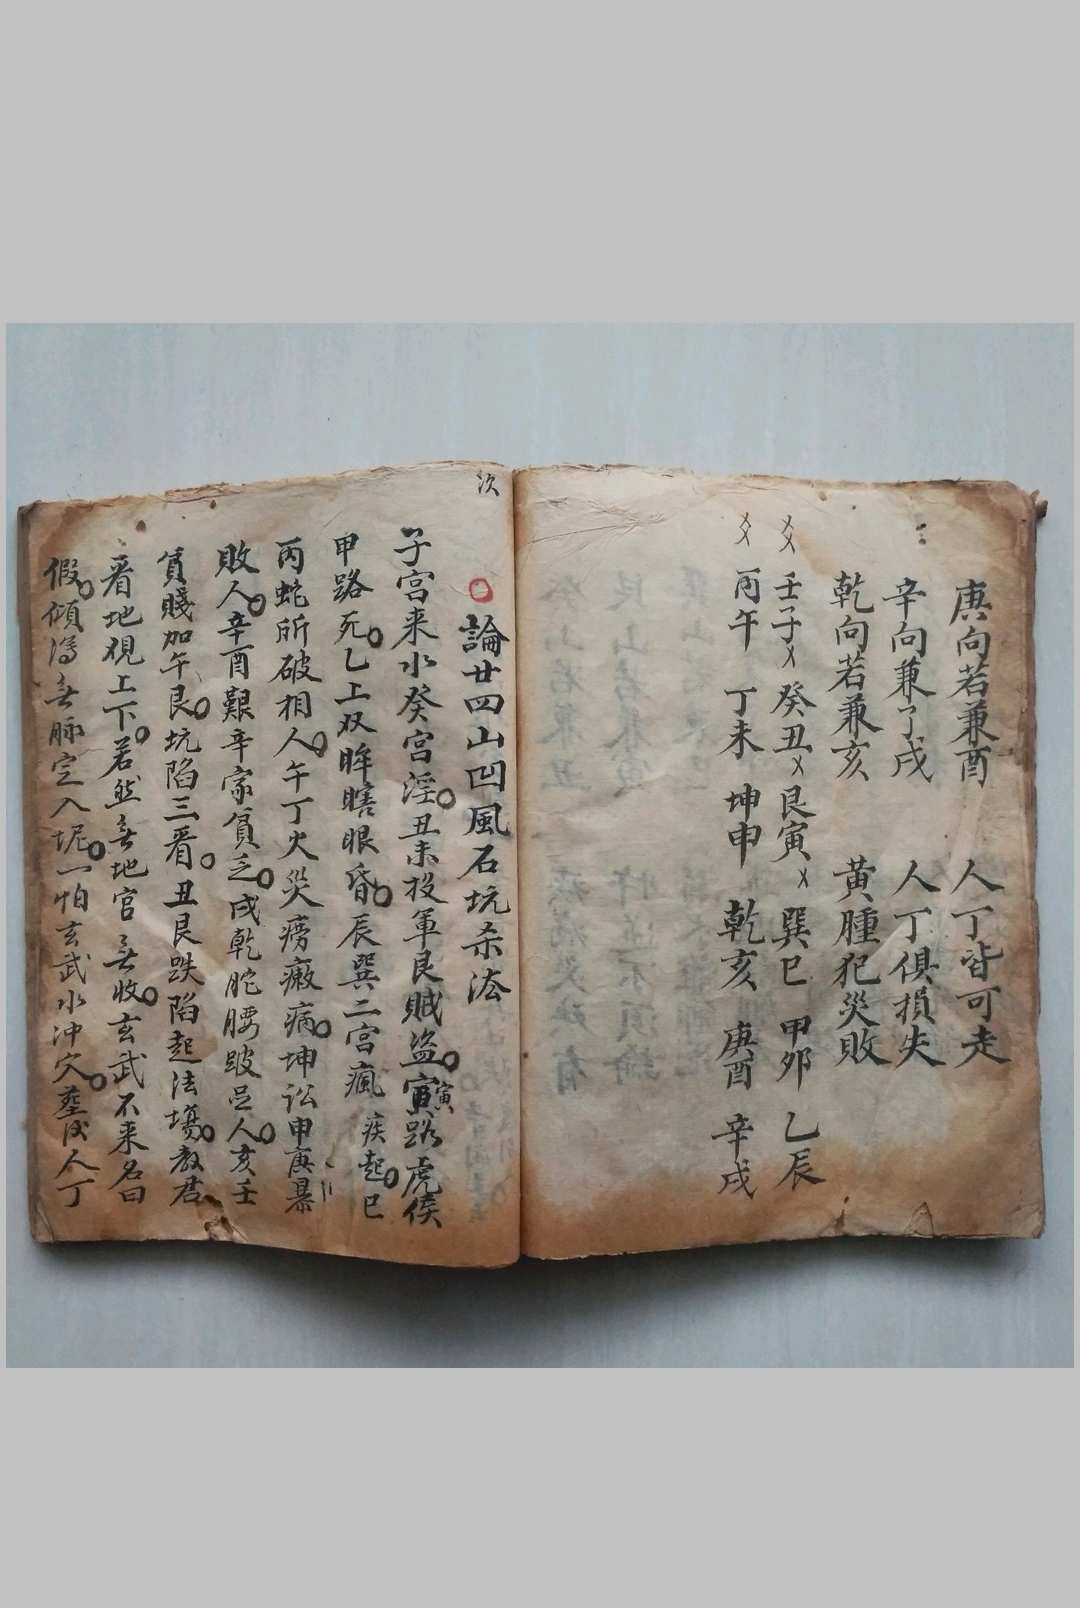 庚向若兼酉 人丁皆可走
辛向兼了戌 人丁俱損失
乾向若兼亥 黃腫犯災敗
壬子 癸丑 艮寅 巽巳 甲夘 乙辰
丙午 丁未 坤申 乾亥 庚酉 辛戌
次
論廿四山凹風石坑杀法
子宮来水癸宮淫丑未投軍艮賊盗寅寅路虎傷
甲路死乙上双眸瞎眼昏辰巽二宮瘋疾起巳
丙蛇所破相人午丁火災痨癜病坤讼申庚暴
敗人辛酉艱辛家貧乏戌乾駝腰跛足人亥壬
貧賤加午艮坑陷三看丑艮跌陷起法塲教君
看地視上下若然無地官無收玄武不来名曰
假傾瀉無脉定入坭一怕玄武水冲穴塟後人丁